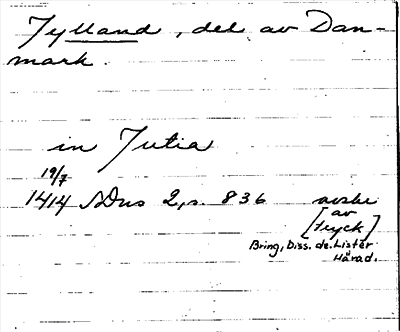 Jylland, del av Dan-
mark.
in Jutia
19/7
1414 SDns 2, s. 836 avskr
[av
tryck]
Bring, Diss. de. Lister
Härad.